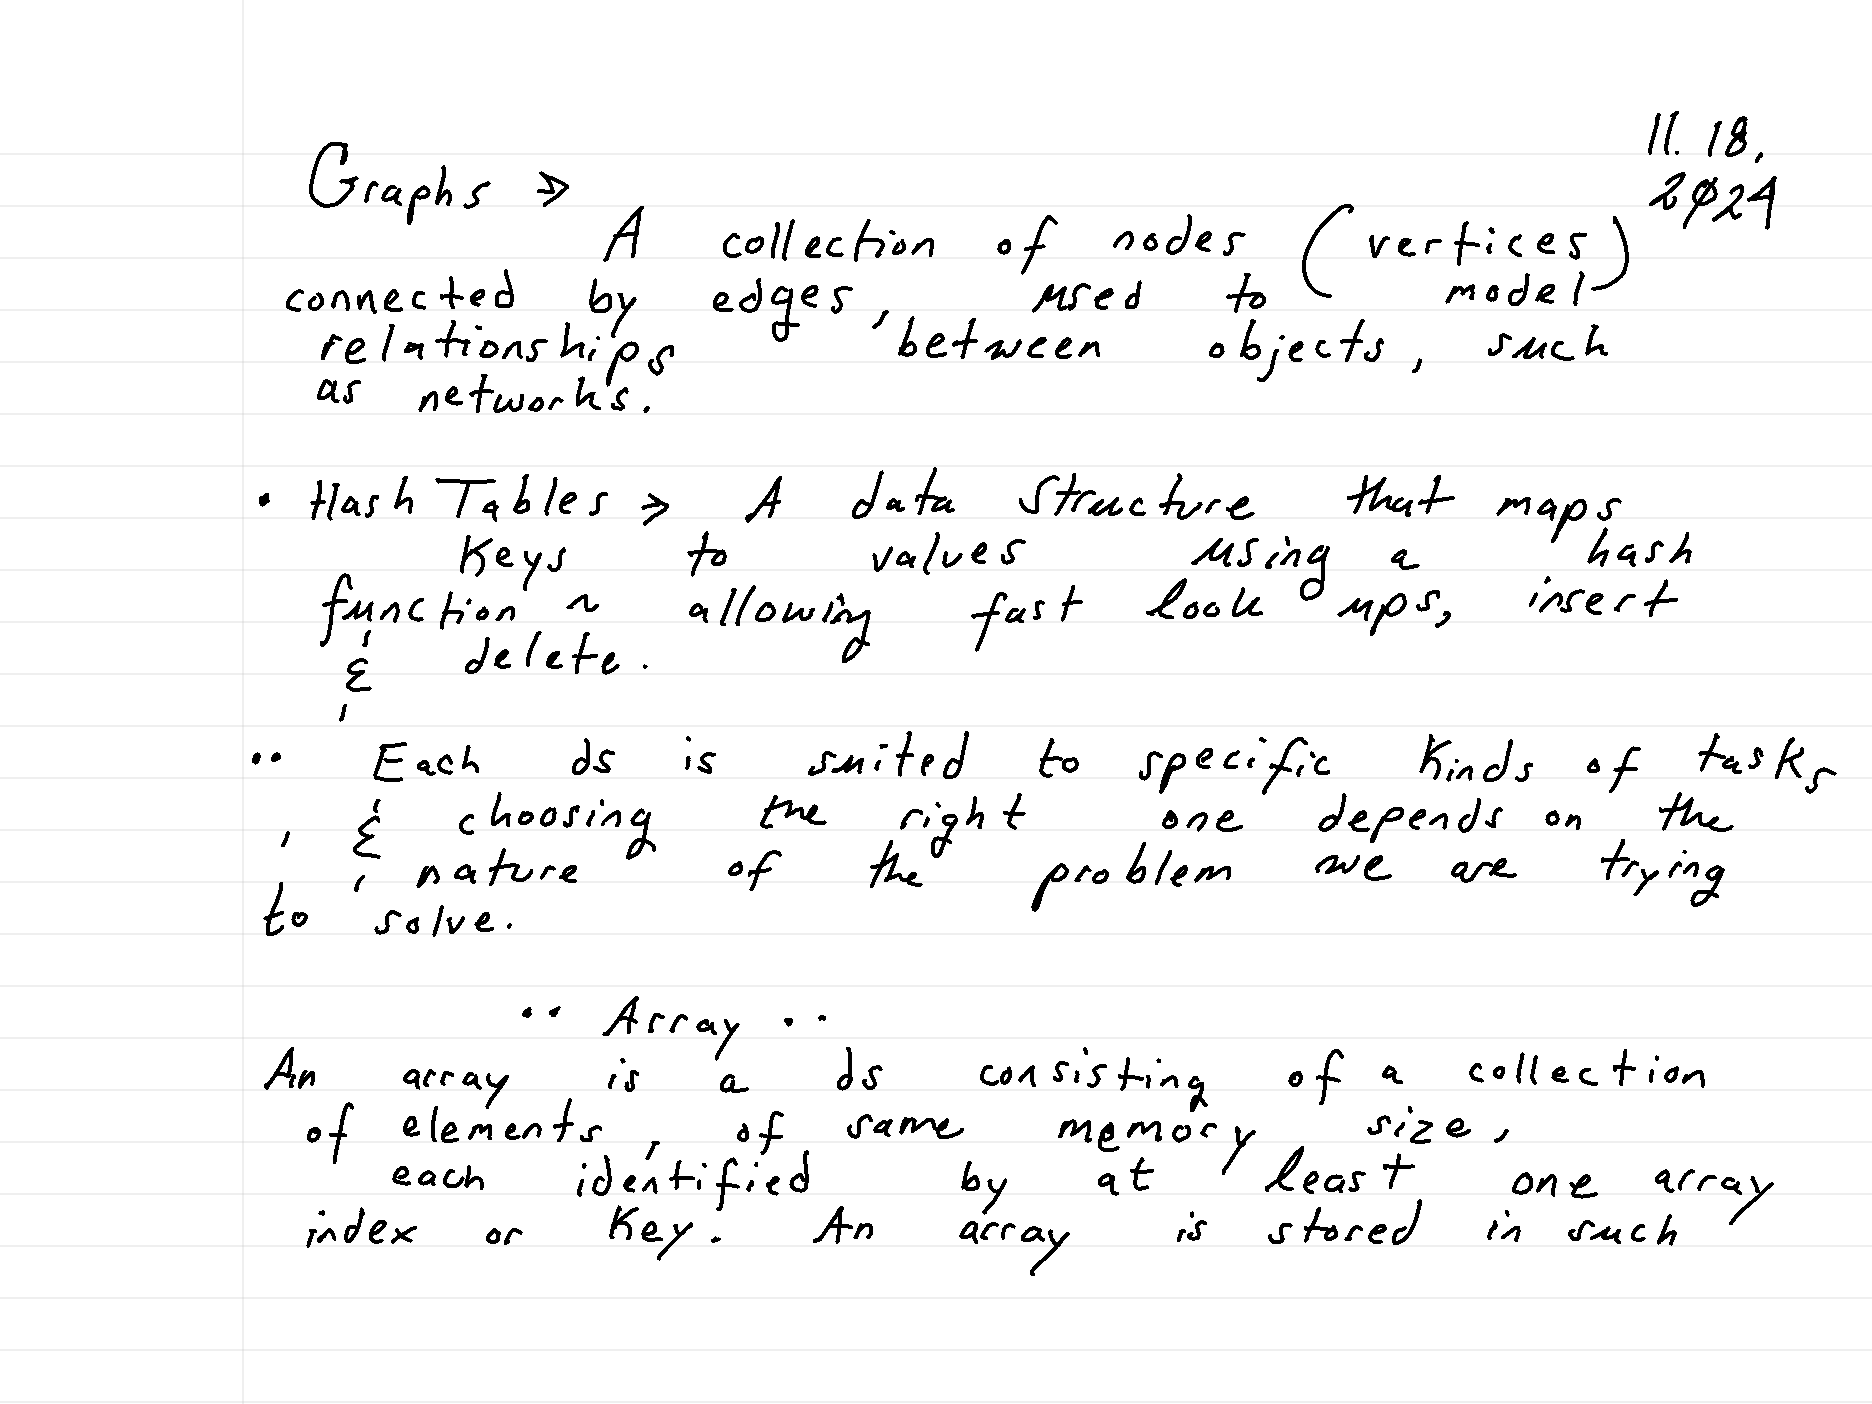 11. 18,
2024
Graphs →
A collection of nodes (vertices)
connected by edges, used to model
relationships between objects, such
as networks.
• Hash Tables → A data structure that maps
keys to values using a hash
function ~ allowing fast look ups, insert
& delete.
•• Each ds is suited to specific kinds of tasks
, & choosing the right one depends on the
nature of the problem we are trying
to solve.
•• Array ••
An array is a ds consisting of a collection
of elements, of same memory size,
each identified by at least one array
index or key. An array is stored in such